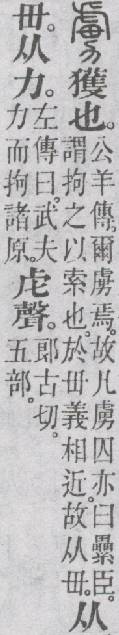 虜 獲也。公羊傳。爾虜焉。故凡虜囚亦曰纍臣。謂拘之以索也。於毌義相近。故从毌。从
毌。从力。左傳曰。武夫力而拘諸原。虍聲。郎古切。五部。